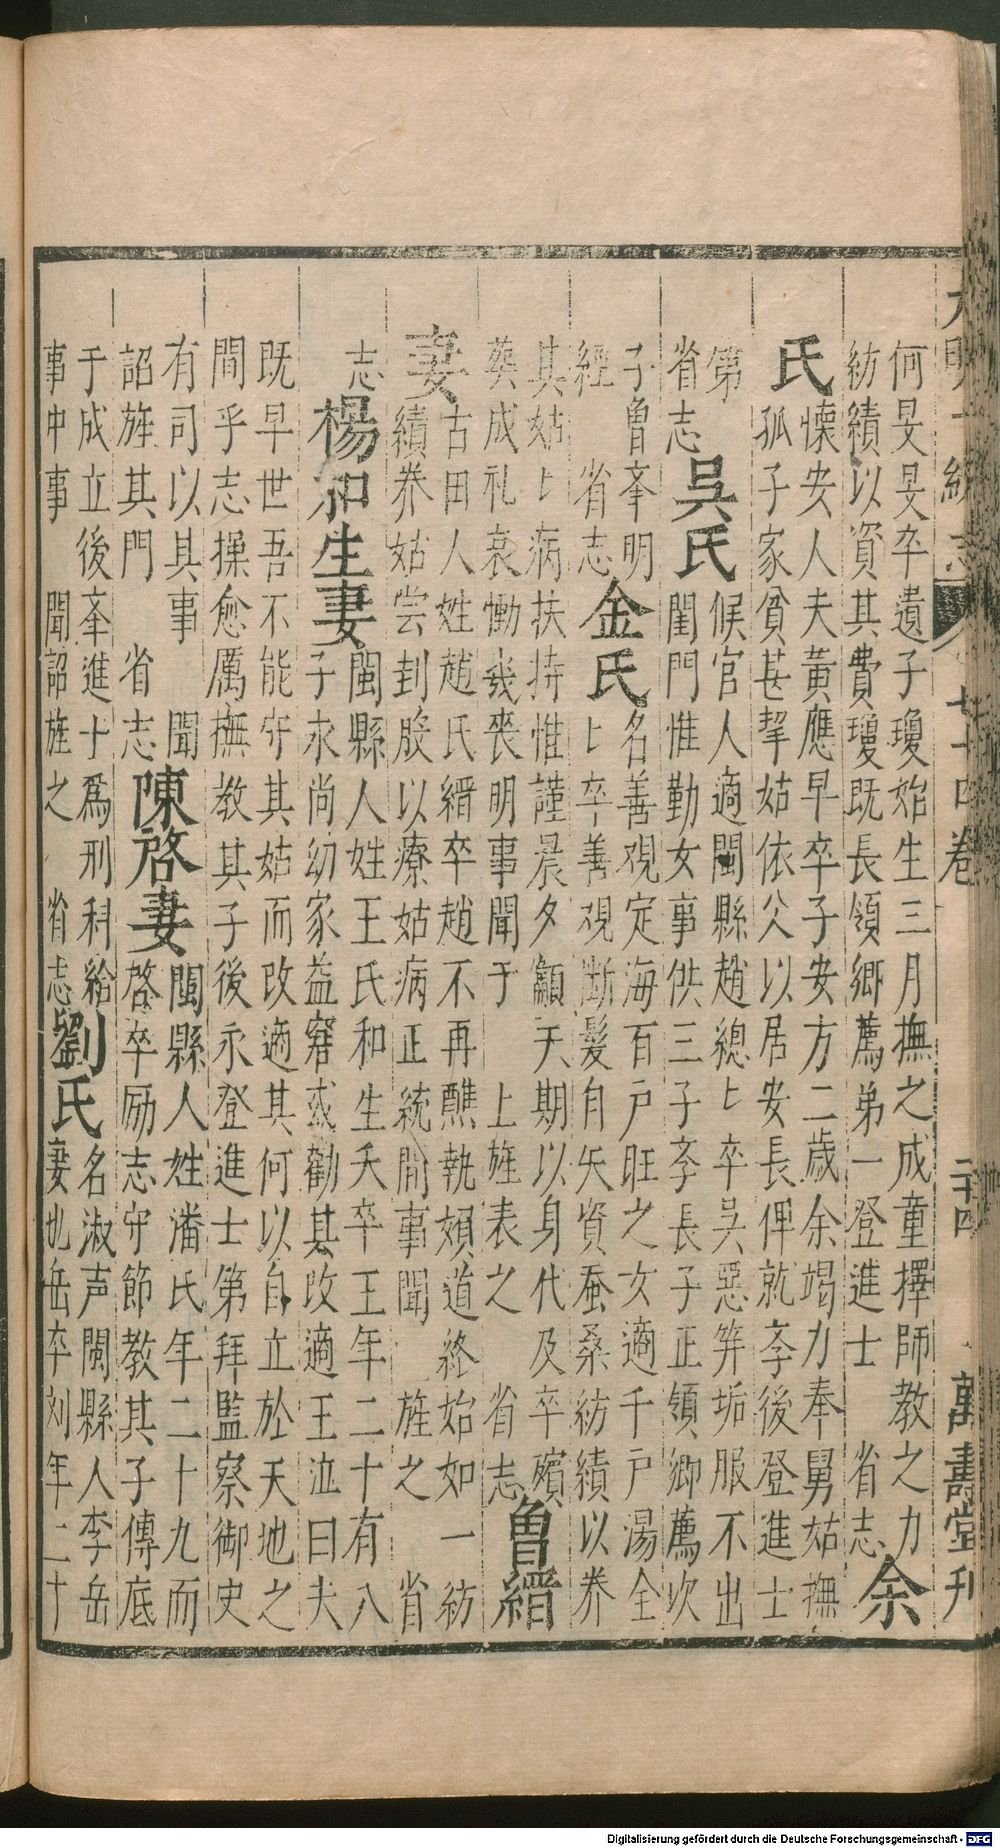 大明一統志 七十四卷 二十四 萬壽堂刋
何旻旻卒遺子瓊始生三月撫之成童擇師教之力
紡績以資其費瓊既長領鄉薦第一登進士 省志 余
氏 懐安人夫黃應早卒子安方二歲余竭力奉舅姑撫
孤子家貧甚挈姑依父以居安長俾就李後登進士
第 候官人適閩縣趙總〻卒吳惡笄垢服不出
省志 吳氏 閨門惟勤女事供三子李長子正領鄉薦次
子魯李明 名善覌定海百戸旺之女適千戸湯全
經 省志 金氏 〻卒善覌斷髮自矢資蚕桑紡績以養
其姑〻病扶持惟謹晨夕籲天期以身代及卒殯
葬成礼哀慟㡬喪明事聞于 上旌表之 省志 魯縉
妻 古田人姓趙氏縉卒趙不再醮執婦道終始如一紡
績養姑嘗刲股以療姑病正統間事聞 旌之 省
志 楊和生妻 閩縣人姓王氏和生夭卒王年二十有八
子永尚幼家益窘或勸其改適王泣曰夫
既早世吾不能守其姑而改適其何以自立於天地之
間乎志操愈厲撫教其子後永登進士第拜監察御史
有司以其事 聞 閩縣人姓潘氏年二十九而
詔旌其門 省志 陳啓妻 啓卒励志守節教其子傳底
于成立後李進士爲刑科給 名淑声閩縣人李岳
事中事 聞詔旌之 省志 劉氏 妻也岳卒刘年二十
Digitalisierung gefördert durch die Deutsche Forschungsgemeinschaft - DFG